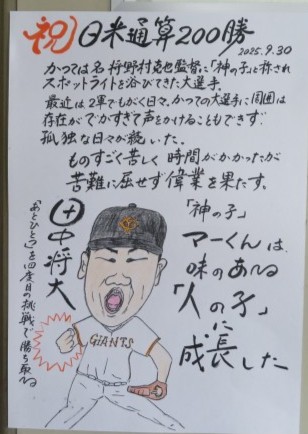 祝 日米通算200勝
2025.9.30
かつては名将野村克也監督に「神の子」と称され
スポットライトを浴びてきた大選手。
最近は2軍でもがく日々、かつての大選手に周囲は
存在がでかすぎて声をかけることもできず
孤独な日々が続いた。
ものすごく苦しく時間がかかったが
苦難に屈せず偉業を果たす。
「神の子」
マーくんは
味のある
「人の子」
に
成長した
田中将大
「あとひとつ」を四度目の挑戦で勝ち取る
GIANTS